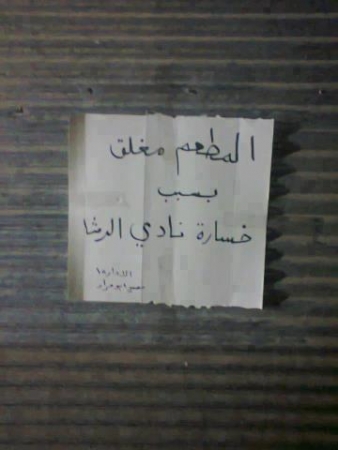 المطعم مغلق
بسبب
خسارة نادي الرشا